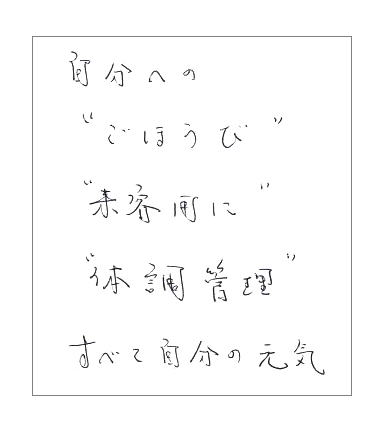 自分への
“ごほうび”
“来客用に”
“体調管理”
すべて自分の元気